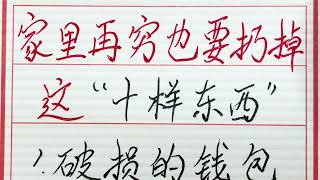 家里再穷也要扔掉
这“十样东西”
1.破损的钱包